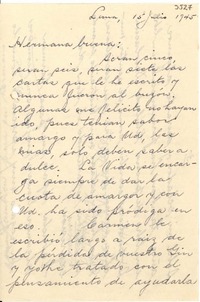 3327
Lima, 15 Julio 1945
Hermana buena:
Serán cinco,
serán seis, serán siete las
cartas que le he escrito y
nunca fueron al buzón.
Algunas me felicito no hayan
ido, pues tenían sabor
amargo y para Ud. las
mías, solo deben saber a
dulce. La Vida se encar-
ga siempre de dar la
cuota de amargor y con
Ud. ha sido pródiga en
eso. Carmen le
escribió largo a raíz de
la pérdida de nuestro Yin
y yo he tratado con el
pensamiento de ayudarla